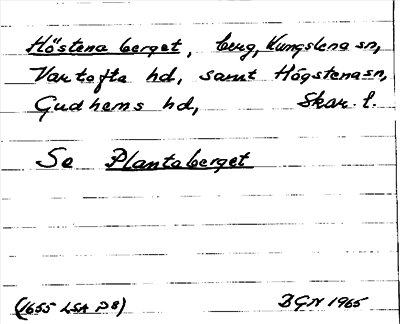 Höstena berget, berg, Kungslena sn,
Vartofta hd, samt Högstena sn,
Gudhems hd, Skar. l.
Se Plantaberget
(1655 LSA P8) BGN 1965